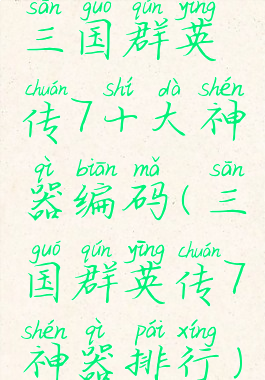 sān guó qún yīng
三国群英
chuán shí dà shén
传7十大神
qì biān mǎ sān
器编码(三
guó qún yīng chuán
国群英传7
shén qì pái xíng
神器排行)